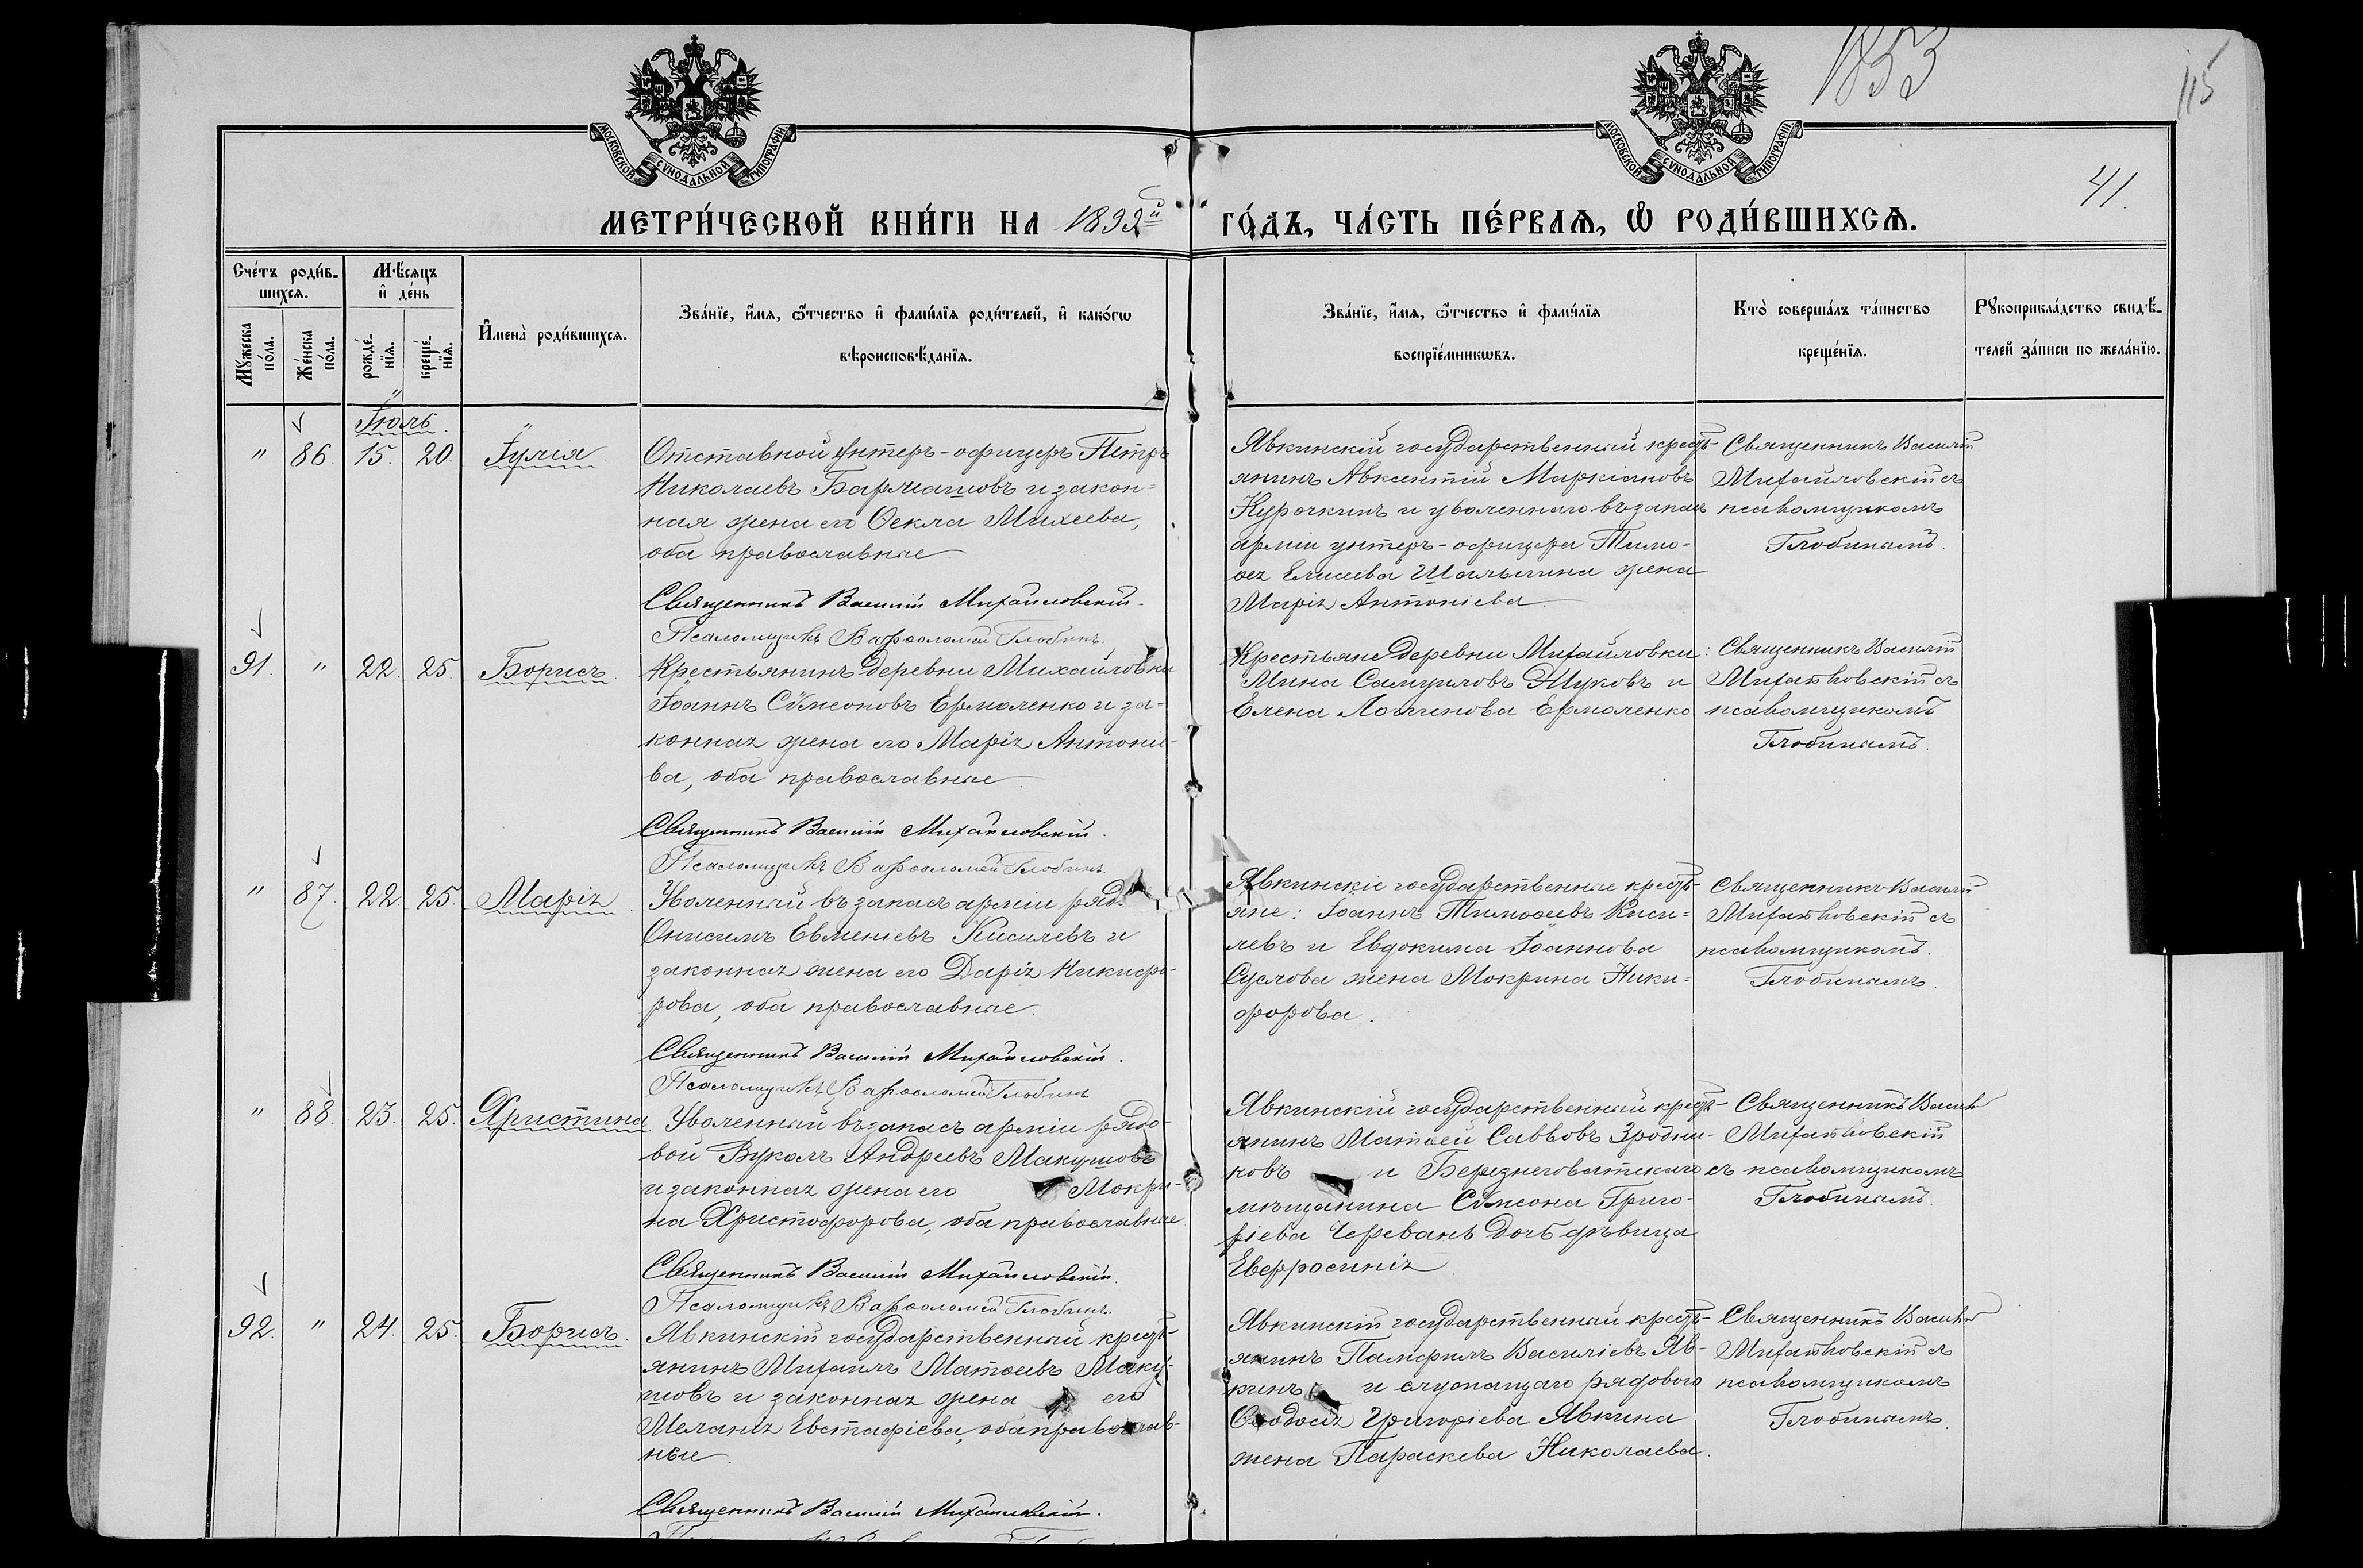 1853
115
41.
МОСКОВСКОЙ СУНОДАЛЬНОЙ ТИПОГРАФІИ
МОСКОВСКОЙ СУНОДАЛЬНОЙ ТИПОГРАФІИ
МЕТРИ́ЧЕСКОЙ КНИ́ГИ НА 1892й ГО́ДЪ, ЧА́СТЬ ПЕ́РВАѦ, Ѡ РОДИ́ВШИХСѦ.
Сче́тъ роди́в-
шихсѧ.
Мꙋ́жеска по́ла.
Же́нска по́ла.
Мѣ́сѧцъ
и де́нь
рожде́-
нїѧ.
креще́-
нїѧ.
Имена̀ роди́вшихсѧ.
Зва́нїе, и́мѧ, ѻ́тчество и фами́лїѧ роди́телей, и како́гѡ
вѣроисповѣ́данїѧ.
Зва́нїе, и́мѧ, ѻ́тчество и фами́лїѧ
воспрїе́мникѡвъ.
Кто̀ соверша́лъ та́инство
креще́нїѧ.
Рꙋкоприкла́дство свидѣ́-
телей за́писи по жела́нїю.
Іюль.
" 86. 15. 20. Іулія
Отставной унтеръ-офицеръ Петръ
Николаевъ Бармашовъ и закон-
ная жена его Ѳекла Михеева,
оба православные
Священникъ Василій Михайловскій.
Псаломщикъ Варѳоломей Глобинъ.
Явкинскій государственный кресть-
янинъ Авксентій Маркіановъ
Курочкинъ и уволеннаго въ запасъ
арміи унтеръ-офицера Тимо-
ѳея Елисеева Шалыгина жена
Марія Антоніева
Священникъ Василій
Михайловскій съ
псаломщикомъ
Глобинымъ.
91. " 22. 25. Борисъ
Крестьянинъ деревни Михайловки
Іоаннъ Сѵмеоновъ Ермоленко и за-
конная жена его Марія Антоніе-
ва, оба православные
Священникъ Василій Михайловскій.
Псаломщикъ Варѳоломей Глобинъ.
Крестьяне деревни Михайловки:
Мина Самуиловъ Жуковъ и
Елена Логгинова Ермоленко
Священникъ Василій
Михайловскій съ
псаломщикомъ
Глобинымъ.
" 87. 22. 25. Марія
Уволенный въ запасъ арміи ряд.
Онисимъ Евменіевъ Киселевъ и
законная жена его Дарія Никифо-
рова, оба православные.
Священникъ Василій Михайловскій.
Псаломщикъ Варѳоломей Глобинъ
Явкинскіе государственные кресть-
яне: Іоаннъ Тимоѳеевъ Кисе-
левъ и Евдокима Іоаннова
Суслова жена Мокрина Ники-
форова.
Священникъ Василій
Михайловскій съ
псаломщикомъ.
Глобинымъ.
" 88. 23. 25. Христина.
Уволенный въ запасъ арміи рядо-
вой Вуколъ Андреевъ Макушовъ
и законная жена его Мокри-
на Христофорова, оба православные
Священникъ Василій Михайловскій.
Псаломщикъ Варѳоломей Глобинъ.
Явкинскій государственный кресть-
янинъ Матѳей Саввовъ Зродни-
ковъ и Березнеговатскаго
мѣщанина Сѵмеона Григо-
ріева Черевань дочь дѣвица
Евфросинія
Священникъ Василій
Михайловскій
съ псаломщикомъ
Глобинымъ.
92. " 24. 25. Борисъ.
Явкинскій государственный кресть-
янинъ Михаилъ Матѳеевъ Маку-
шовъ и законная жена его
Меланія Евстафіева, оба православ-
ные
Священникъ Василій Михайловскій.
Явкинскій государственный кресть-
янинъ Памфилъ Василіевъ Яв-
кинъ и служащаго рядового
Ѳеодосія Григоріева Явкина
жена Параскева Николаева.
Священникъ Василій
Михайловскій съ
псаломщикомъ
Глобинымъ.